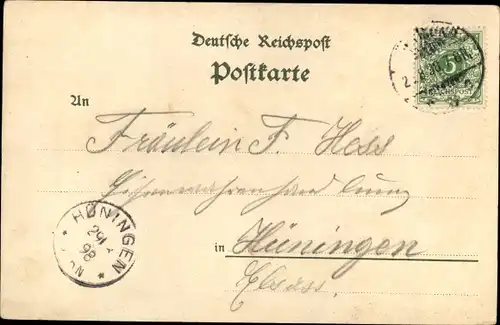 Deutsche Reichspost
Postkarte
An
Fräulein F. Hess
Eisenwarenhandlung
in Hüningen
Elsass.
HÜNINGEN
29
98
5
REICHSPOST